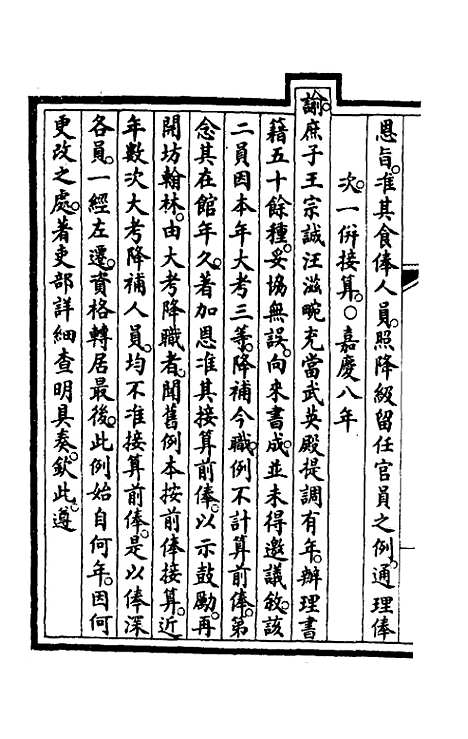 恩旨。准其食俸人員。照降級留任官員之例。通理俸
次。一併接算。○嘉慶八年
諭。庶子王宗誠汪滋畹充當武英殿提調有年。辦理書
籍五十餘種。妥協無誤。向來書成。並未得邀議敘。該
二員因本年大考三等。降補今職。例不計算前俸。第
念其在館年久。著加恩准其接算前俸。以示鼓勵。再
開坊翰林。由大考降職者。聞舊例本按前俸接算。近
年數次大考降補人員。均不准接算前俸。是以俸深
各員。一經左遷。資格轉居最後。此例始自何年。因何
更改之處。著吏部詳細查明具奏。欽此。遵